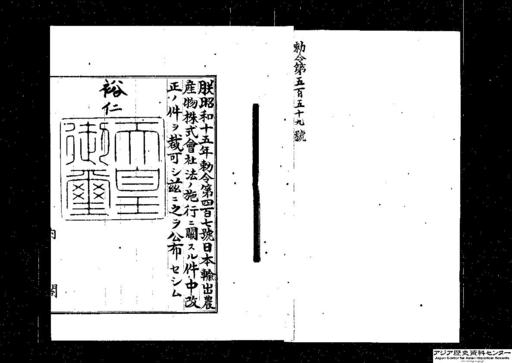 勅令第五百五十九號
朕昭和十五年勅令第四百七號日本輸出農
産物株式會社法ノ施行ニ關スル件中改
正ノ件ヲ裁可シ茲ニ之ヲ公布セシム
裕仁
天皇
御璽
内閣
アジア歴史資料センター
Japan Center for Asian Historical Records